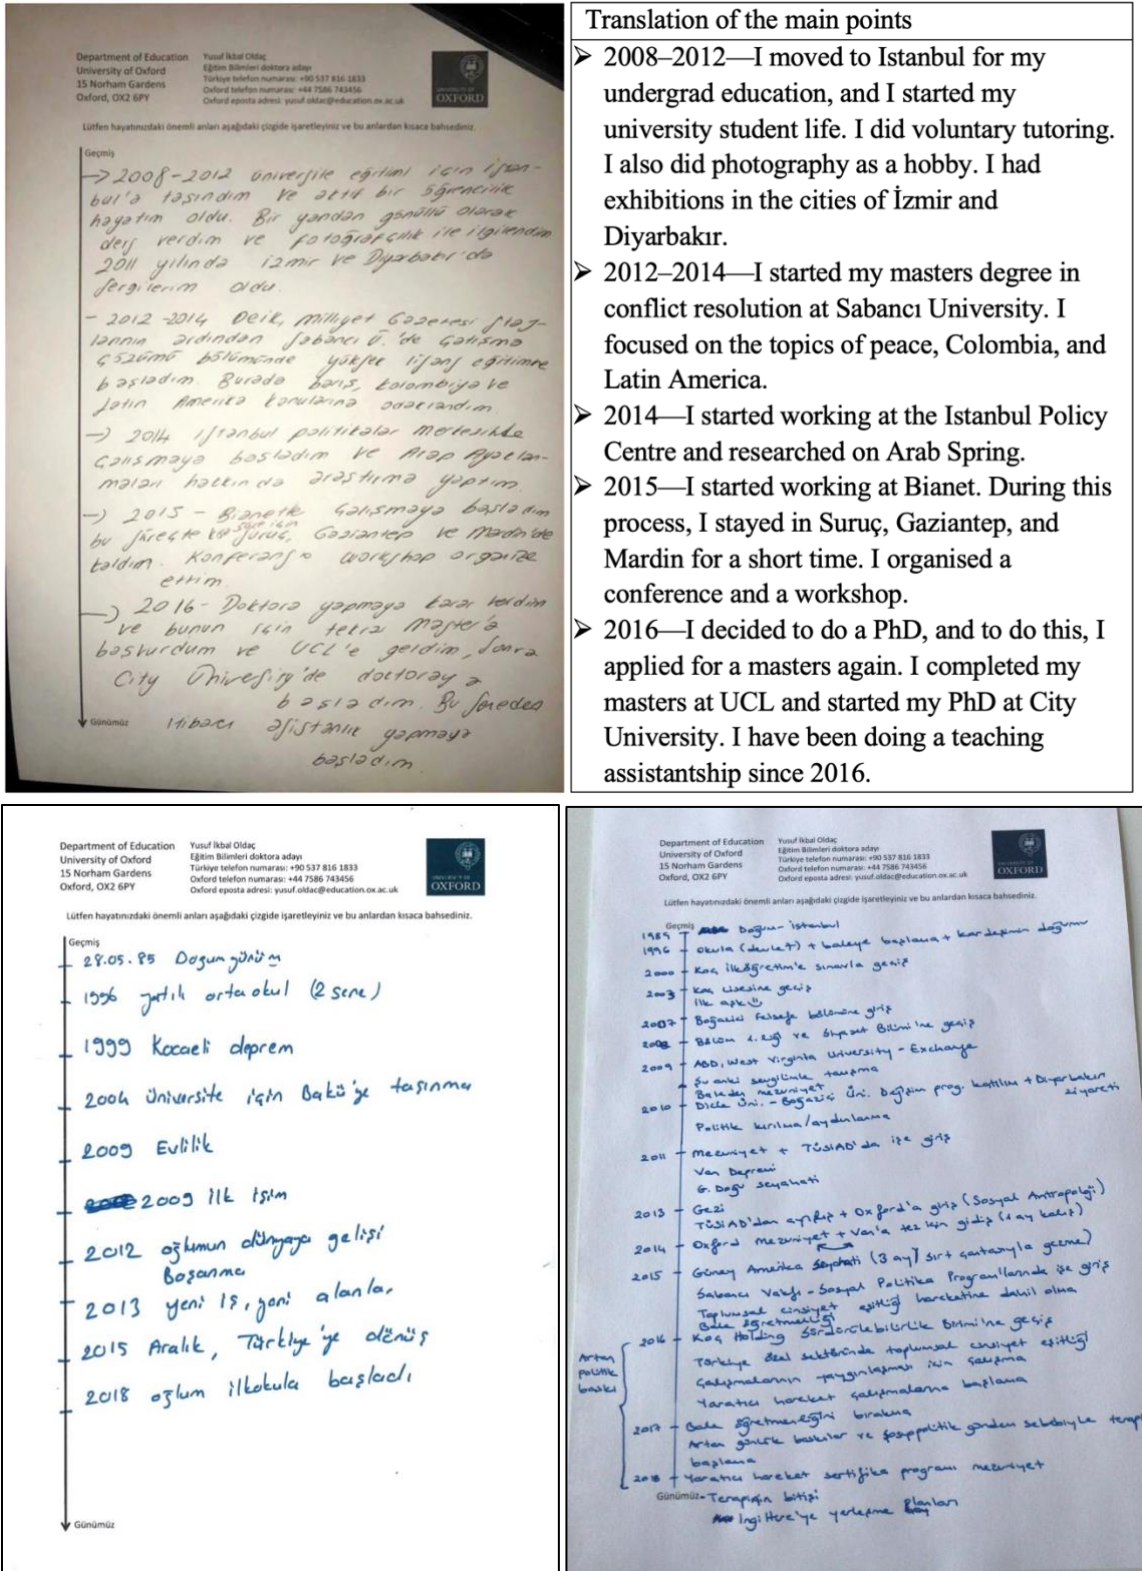 Department of Education
University of Oxford
15 Norham Gardens
Oxford, OX2 6PY
Yusuf İkbal Oldaç
Eğitim Bilimleri doktora adayı
Türkiye telefon numarası: +90 537 816 1833
Oxford telefon numarası: +44 7586 743456
Oxford eposta adresi: yusuf.oldac@education.ox.ac.uk
UNIVERSITY OF
OXFORD
Lütfen hayatınızdaki önemli anları aşağıdaki çizgide işaretleyiniz ve bu anlardan kısaca bahsediniz.
Geçmiş
→ 2008-2012 üniversite eğitimi için İstan-
bul'a taşındım ve aktif bir öğrencilik
hayatım oldu. Bir yandan gönüllü olarak
ders verdim ve fotoğrafçılık ile ilgilendim
2011 yılında izmir ve Diyarbakır'da
sergilerim oldu.
- 2012-2014 Deik, Milliyet Gazetesi staj-
larının ardından Sabancı Ü.'de Çatışma
Çözümü bölümünde yüksek lisans eğitimine
başladım. Burada barış, Kolombiya ve
Latin Amerika konularına odaklandım.
→ 2014 İstanbul politikalar merkezinde
çalışmaya başladım ve Arap Ayaklan-
maları hakkında araştırma yaptım.
→ 2015 - Bianetle çalışmaya başladım
bu süreçte kısa süre için Suruç, Gaziantep ve Mardin'de
kaldım. Konferans workshop organize
ettim.
→ 2016 - Doktora yapmaya karar verdim
ve bunun için tekrar master'a
başvurdum ve UCL'e geldim, sonra
City Üniversity'de doktoraya
başladım. Bu seneden
itibaren asistanlık yapmaya
başladım.
Günümüz
Translation of the main points
➢ 2008–2012—I moved to Istanbul for my
undergrad education, and I started my
university student life. I did voluntary tutoring.
I also did photography as a hobby. I had
exhibitions in the cities of İzmir and
Diyarbakır.
➢ 2012–2014—I started my masters degree in
conflict resolution at Sabancı University. I
focused on the topics of peace, Colombia, and
Latin America.
➢ 2014—I started working at the Istanbul Policy
Centre and researched on Arab Spring.
➢ 2015—I started working at Bianet. During this
process, I stayed in Suruç, Gaziantep, and
Mardin for a short time. I organised a
conference and a workshop.
➢ 2016—I decided to do a PhD, and to do this, I
applied for a masters again. I completed my
masters at UCL and started my PhD at City
University. I have been doing a teaching
assistantship since 2016.
Department of Education
University of Oxford
15 Norham Gardens
Oxford, OX2 6PY
Yusuf İkbal Oldaç
Eğitim Bilimleri doktora adayı
Türkiye telefon numarası: +90 537 816 1833
Oxford telefon numarası: +44 7586 743456
Oxford eposta adresi: yusuf.oldac@education.ox.ac.uk
UNIVERSITY OF
OXFORD
Lütfen hayatınızdaki önemli anları aşağıdaki çizgide işaretleyiniz ve bu anlardan kısaca bahsediniz.
Geçmiş
28.05.85 Doğum günüm
1996 yatılı ortaokul (2 sene)
1999 Kocaeli deprem
2004 Üniversite için Bakü'ye taşınma
2009 Evlilik
2009 ilk işim
2012 oğlumun dünyaya gelişi
Boşanma
2013 yeni iş, yeni alanlar
2015 Aralık, Türkiye'ye dönüş
2018 oğlum ilkokula başladı
Günümüz
Department of Education
University of Oxford
15 Norham Gardens
Oxford, OX2 6PY
Yusuf İkbal Oldaç
Eğitim Bilimleri doktora adayı
Türkiye telefon numarası: +90 537 816 1833
Oxford telefon numarası: +44 7586 743456
Oxford eposta adresi: yusuf.oldac@education.ox.ac.uk
UNIVERSITY OF
OXFORD
Lütfen hayatınızdaki önemli anları aşağıdaki çizgide işaretleyiniz ve bu anlardan kısaca bahsediniz.
Geçmiş
1989 Doğum - istanbul
1996 okula (devlet) + baleye başlama + kardeşimin doğumu
2000 Koç ilköğretim'e sınavla geçiş
2003 Koç Lisesine geçiş
ilk aşk
2007 Boğaziçi Felsefe bölümüne giriş
2008 ve Siyaset Bilimi'ne geçiş
2009 ABD, West Virginia University - Exchange
Şu anki sevgilimle tanışma
Baleden mezuniyet
2010 Dicle Üni. - Boğaziçi Üni. Değişim prog. katılım + Diyarbakır
ziyareti
Politik kırılma/aydınlanma
2011 Mezuniyet + TÜSİAD'da işe giriş
Van Depremi
G. Doğu seyahati
2013 Gezi
TÜSİAD'dan ayrılış + Oxford'a giriş (Sosyal Antropoloji)
2014 Oxford mezuniyet + Van'a tez için gidiş (1 ay kalış)
2015 Güney Amerika seyahati (3 ay) sırt çantasıyla gezme)
Sabancı Vakfı - Sosyal Politika Programlarında işe giriş
Toplumsal cinsiyet eşitliği hareketine dahil olma
Bale öğretmenliği
2016 Koç Holding Sürdürülebilirlik Birimi'ne geçiş
Türkiye özel sektöründe toplumsal cinsiyet eşitliği
çalışmalarının yaygınlaşması için çalışma
Yaratıcı hareket çalışmalarına başlama
Artan
politik
baskı
2017 Bale öğretmenliğini bırakma
Artan günlük baskılar ve sosyopolitik gündem sebebiyle terapi
başlama
2018 Yaratıcı hareket sertifika programı mezuniyet
Günümüz Terapinin bitişi
İngiltere'ye yerleşme planları